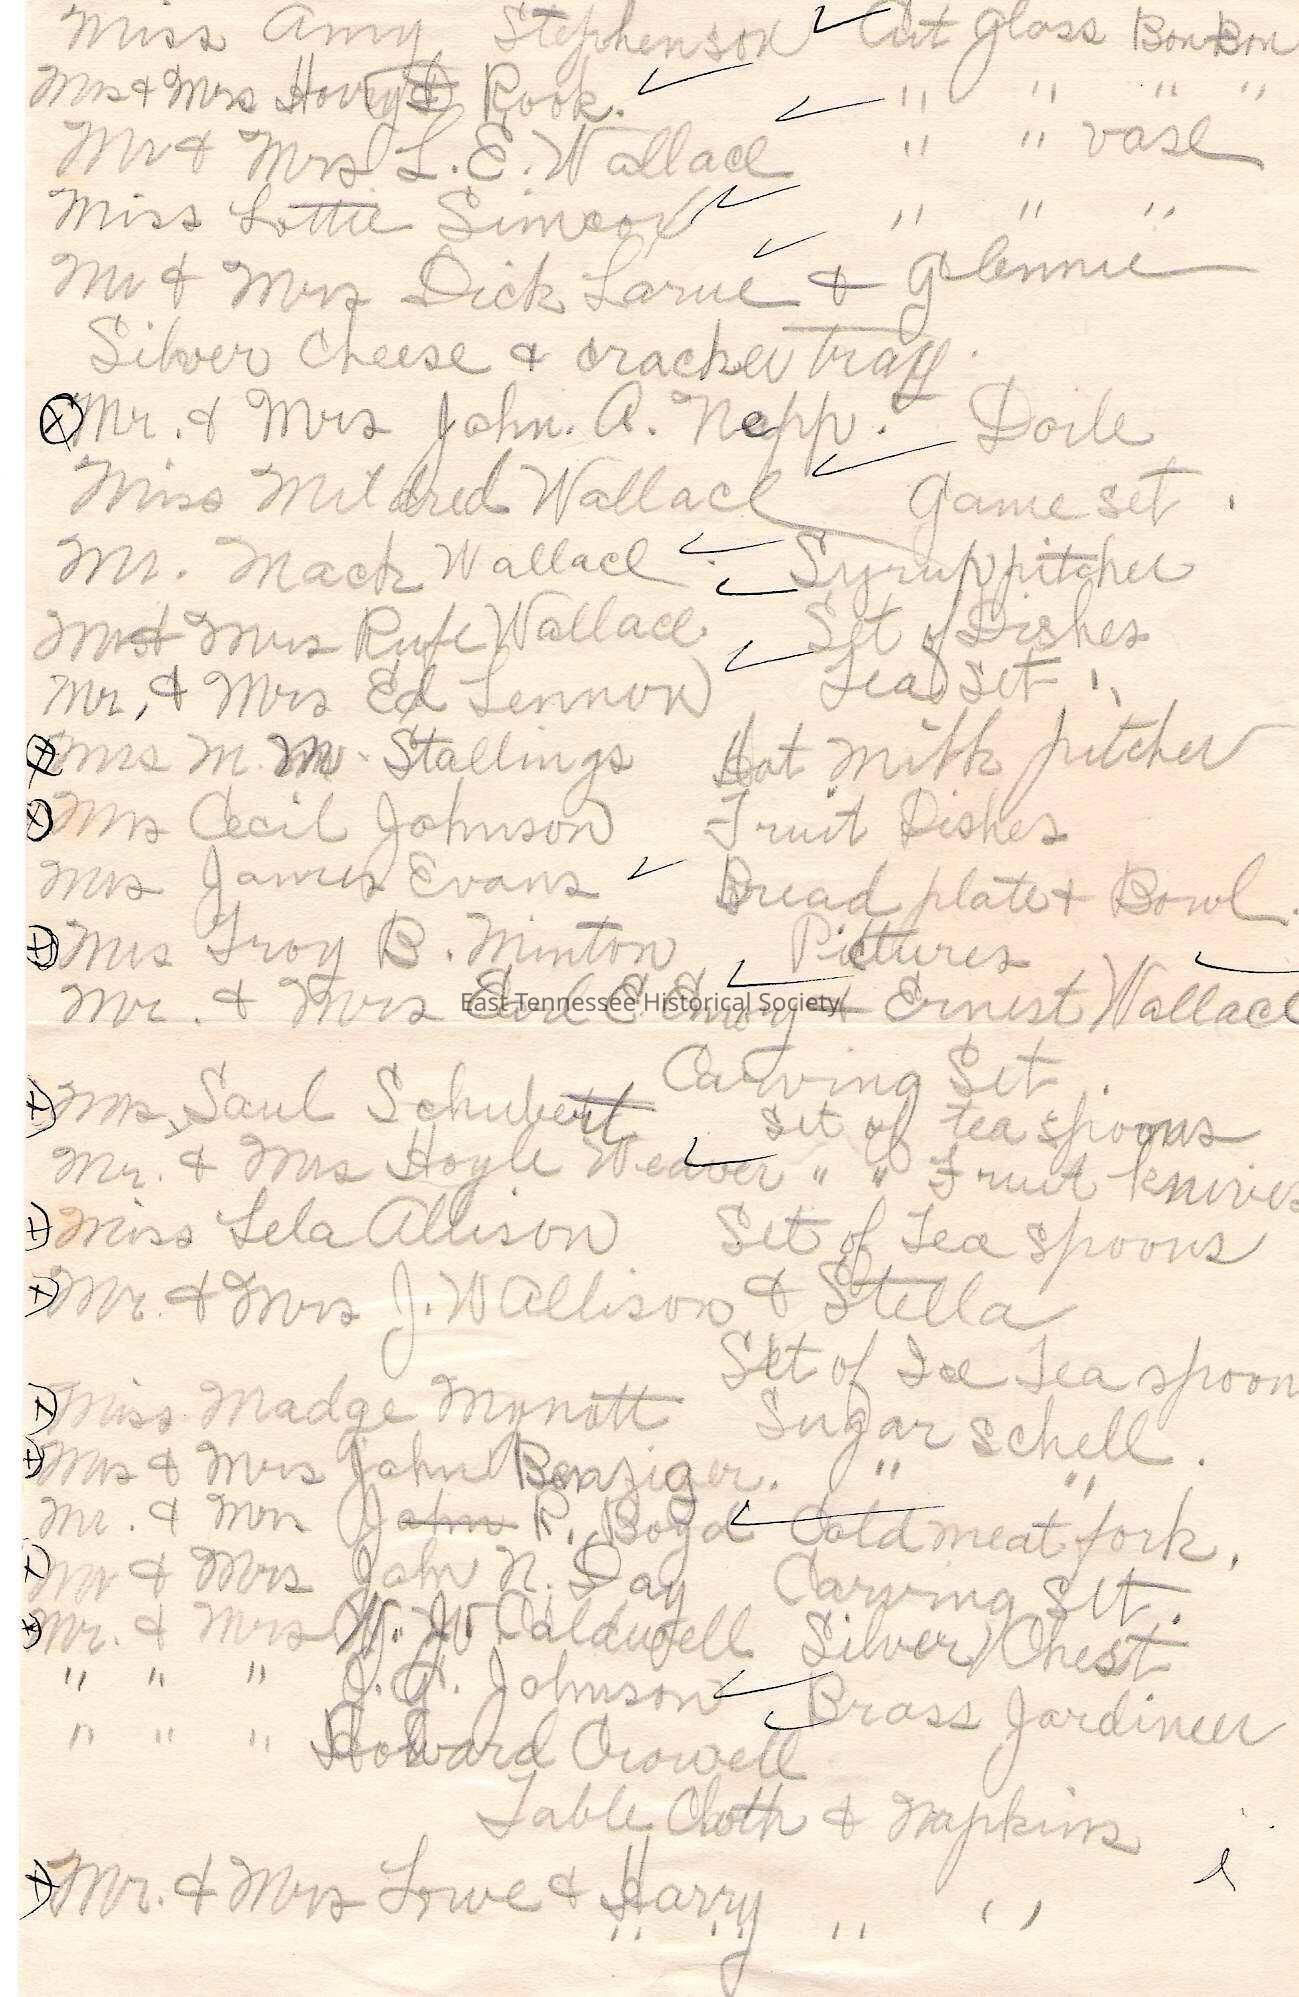 Miss Amy Stephenson Cut glass Bon Bon
Mr & Mrs Harry D Rook. " " " "
Mr & Mrs L. E. Wallace " " vase
Miss Lottie Simcox " " "
Mr & Mrs Dick Larue & Glennie
Silver Cheese & cracker tray.
Mr. & Mrs John. A. Nepp. Doile
Miss Mildred Wallace Game set.
Mr. Mack Wallace. Syrup pitcher
Mr & Mrs Rufe Wallace Set of Dishes
Mr, & Mrs Ed Lennon Tea Set.
Mrs M. M. Stallings Hot Milk pitcher
Mrs Cecil Johnson Fruit Dishes
Mrs James Evans Bread plate & Bowl.
Mrs Troy B. Minton Pictures
Mr. & Mrs Earl E Emory & Ernest Wallace
East Tennessee Historical Society
Carving Set.
Mrs, Saul Schubert Set of tea spoons
Mr. & Mrs Hoyle Weaver " " Fruit knives
Miss Lela Allison Set of Tea spoons
Mr. & Mrs J. W Allison & Stella
Set of Ice Tea spoon
Miss Madge Mynott Sugar schell.
Mrs & Mrs John Benziger. " "
Mr. & Mrs John R. Boyd Cold meat fork.
Mr & Mrs John N. Day Carving Set.
Mr. & Mrs W. W. Caldwell Silver Chest
" " " J. H. Johnson Brass Jardineer
" " " Howard Crowell
Table Cloth & Napkins
Mr. & Mrs Lowe & Harry " "